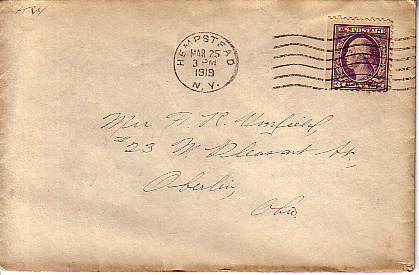 HEMPSTEAD
MAR 25
3 PM
1919
N.Y.
U.S. POSTAGE
F. R. Winfield,
#23 W. Pleasant St.,
Oberlin,
Ohio.